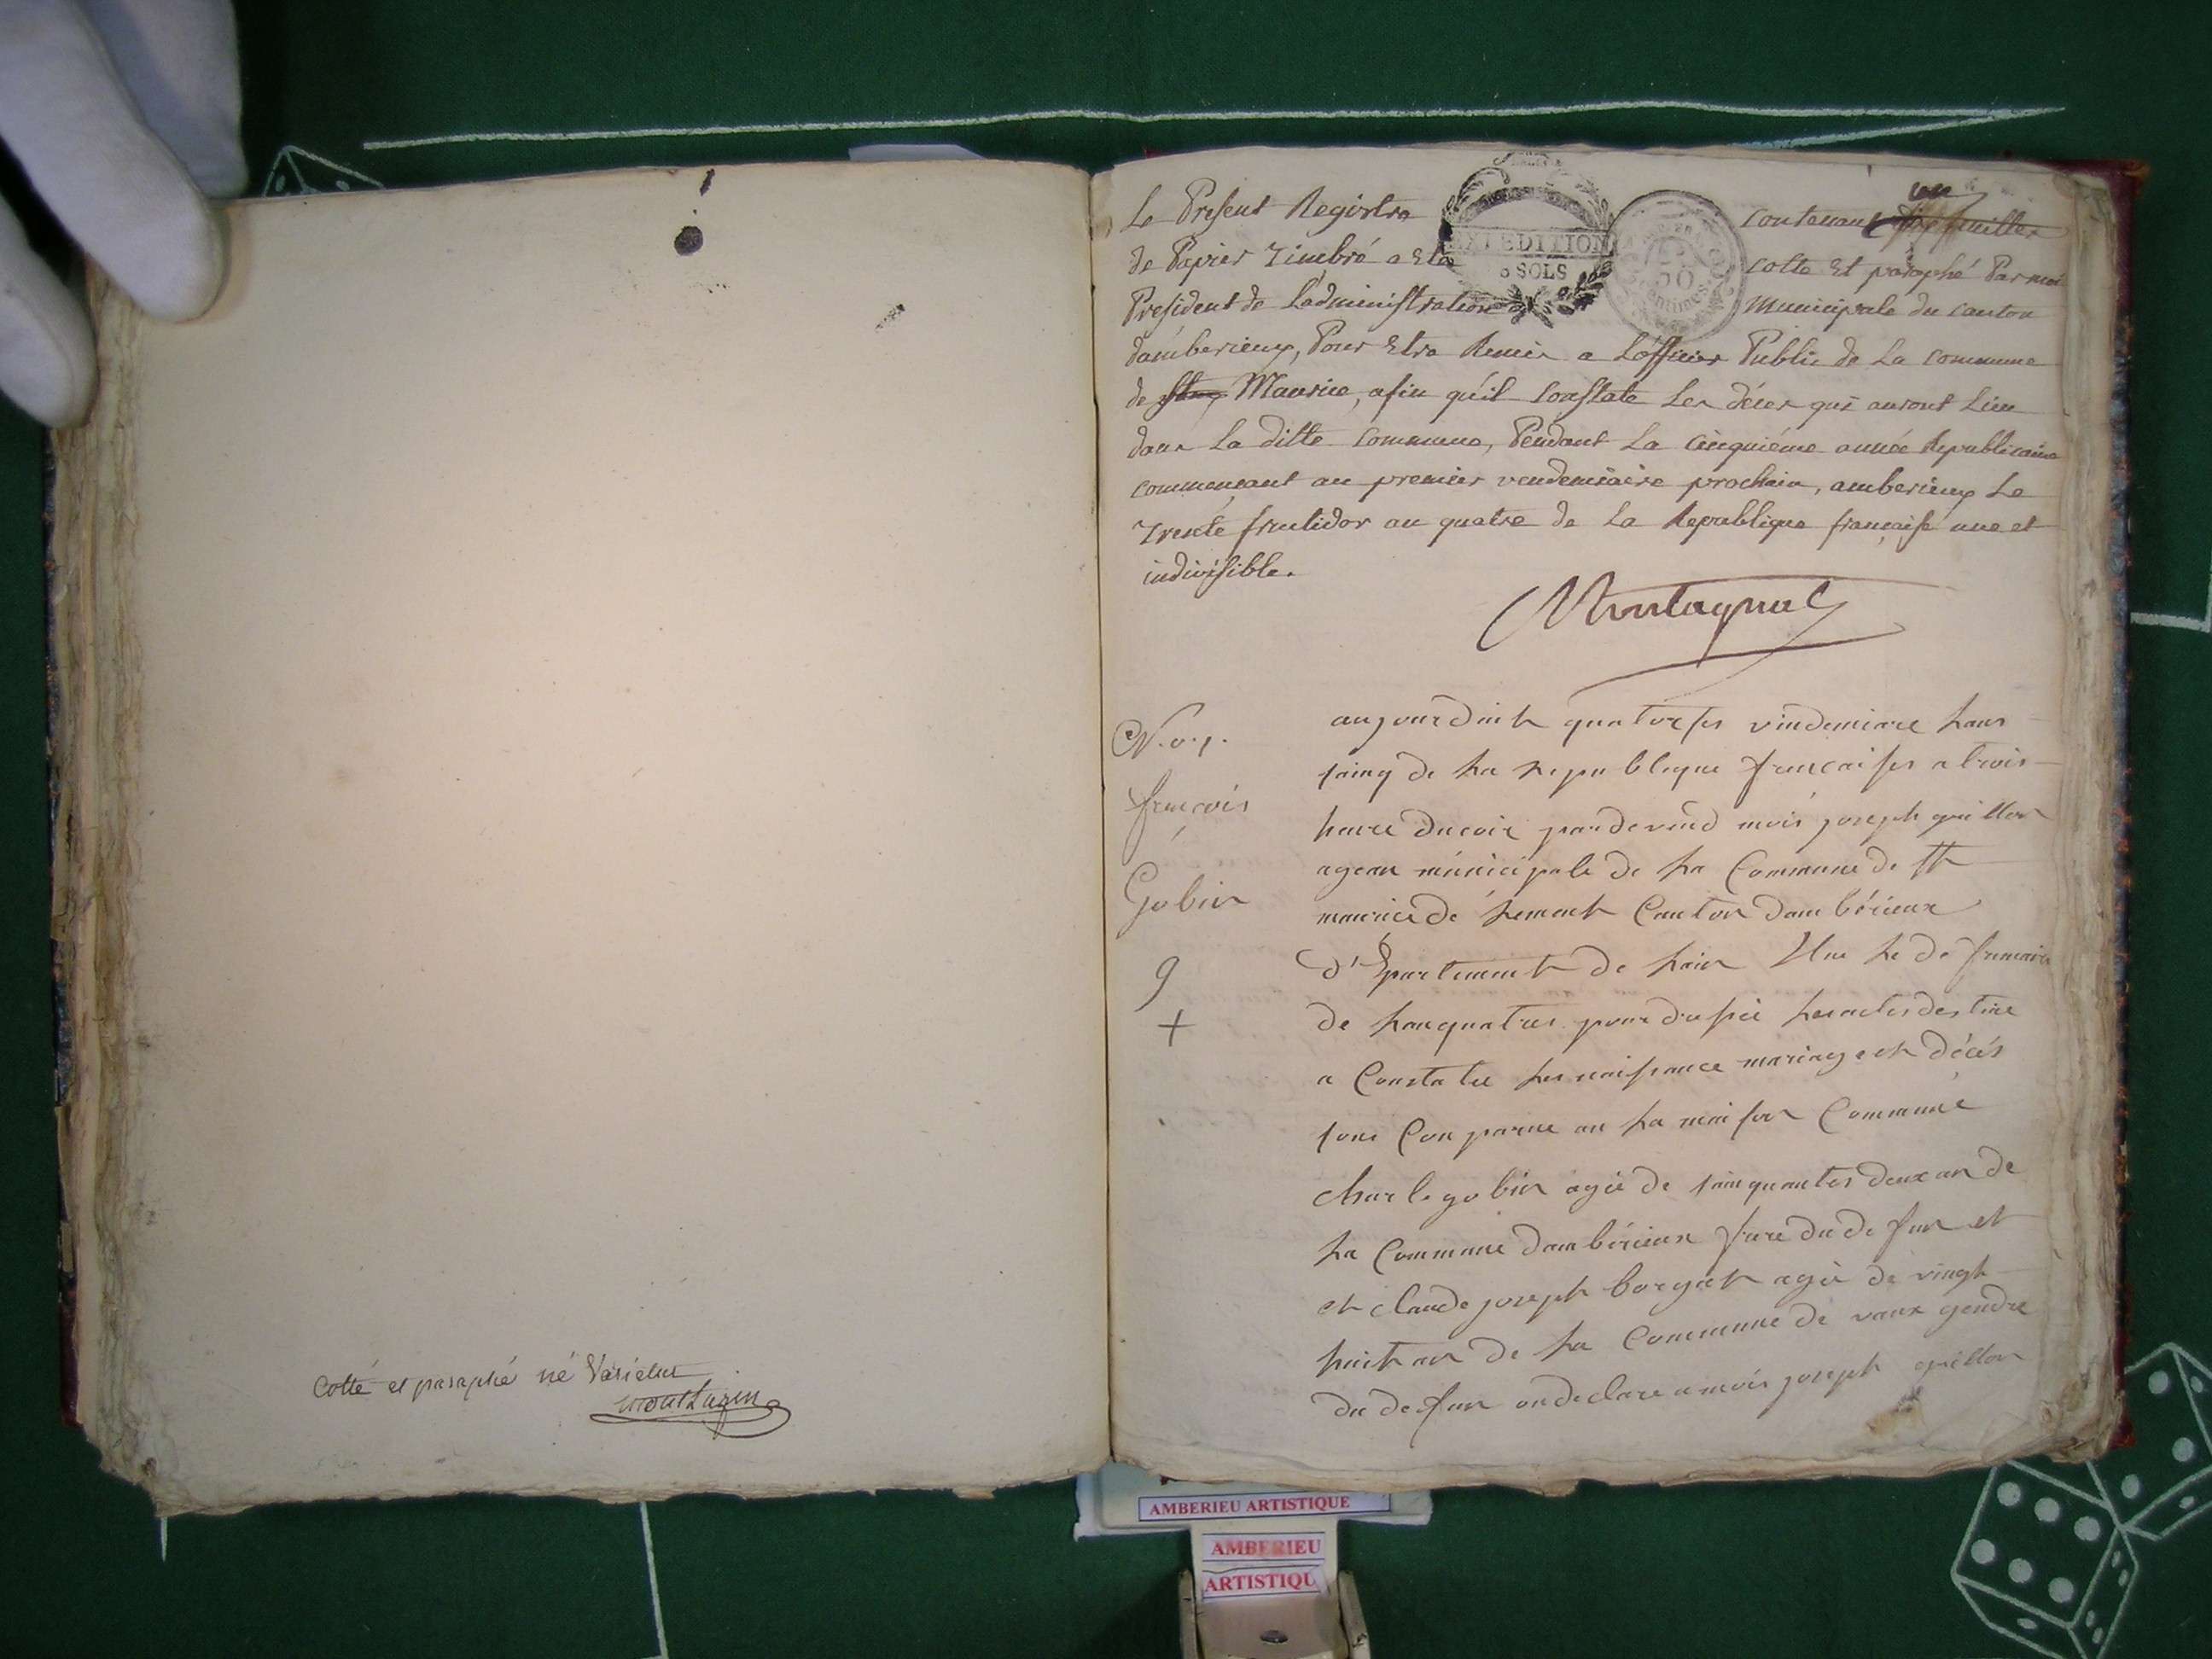 Cotté et paraphé né Varietur
Le Present Registre contenant
de Papier Timbré a Eté cotté Et paraphé Par moi
President de L'administration Municipale du canton
d'amberieux, Pour Etre Remis a L'officier Public de La commune
de Maurice, afin qu'il Constate Les décés qui auront Lieu
dans La ditte Commune, Pendant La cinquiéme année Republicaine
commençant au premier vendemiaire prochain, amberieux Le
Trente fructidor an quatre de La Republique française une et
indivisible.
EXPEDITION
5 SOLS
50
centimes
Montagnat
N.o.1.
françois
Gobin
9
+
aujourduit quatorses vindemiare Lans
sainq de La Republique francaises a trois
heure ducoir pardevend mois joseph guillon
agean municipale de La Commune de St
maurice de Rement Canton damberieux
d'Epartement de Lain Elue Le de
de Lanquatres pour dresié Lesactes destine
a Constatee Les naissance mariage et décés
sons Conparue an La maison Commune
charle gobin agée de sainquantes deux an de
La Commune damberieux frere du defun et
et claude joseph borgat agée de vingt
huit an de La Commune de vaux gendre
du defun ondeclare a mois joseph guillon
AMBERIEU ARTISTIQUE
AMBERIEU
ARTISTIQU